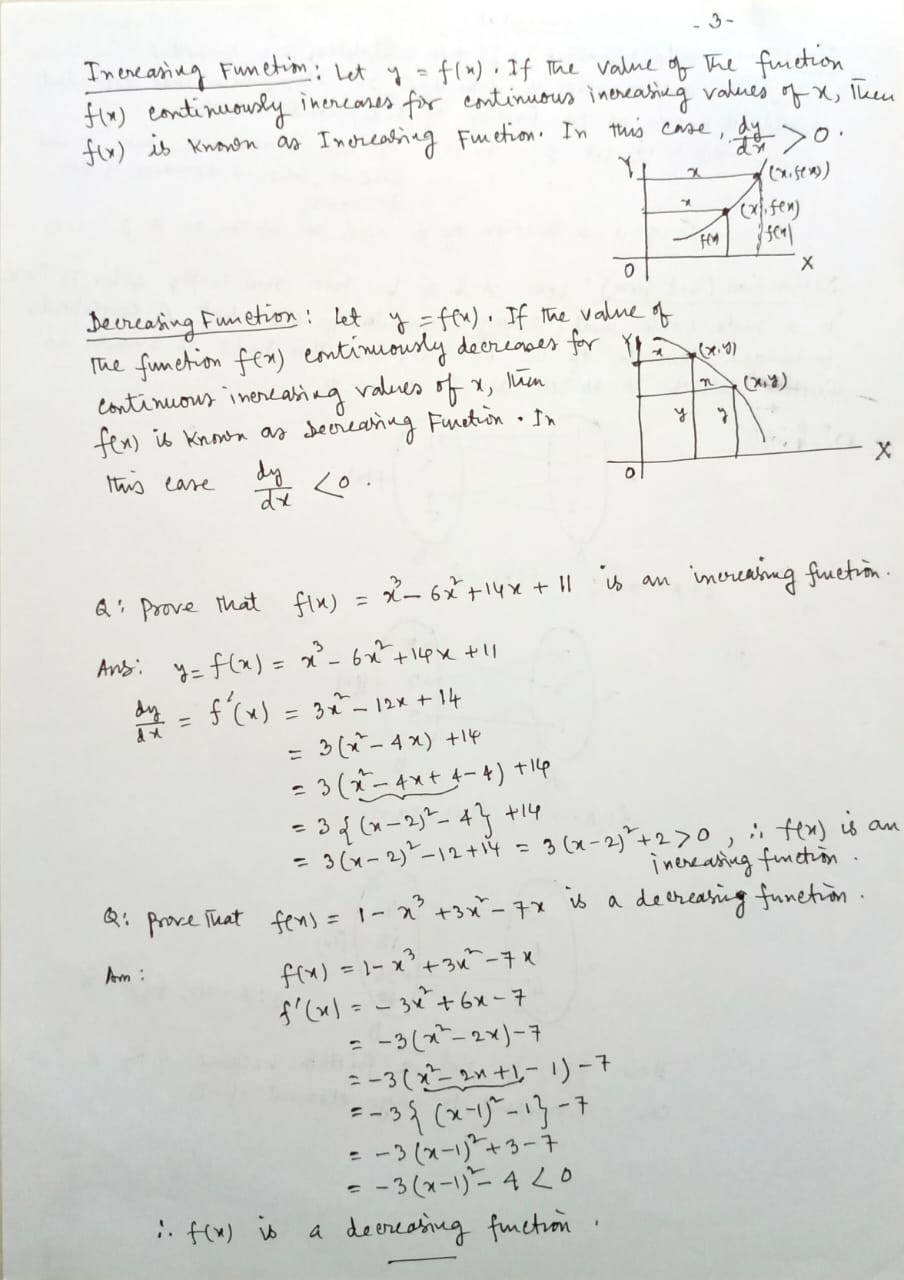 - 3 -
Increasing Function: Let y = f(x). If the value of the function
f(x) continuously increases for continuous increasing values of x, then
f(x) is known as Increasing Function. In this case, dy/dx > 0.
Y x (x, f(x))
x (x, f(x))
f(x) f(x)
O X
Decreasing Function: Let y = f(x). If the value of
the function f(x) continuously decreases for
continuous increasing values of x, then
f(x) is known as Decreasing Function. In
this case dy/dx < 0.
Y x (x, y)
x (x, y)
y y
O X
Q: Prove that f(x) = x³ - 6x² + 14x + 11 is an increasing function.
Ans: y = f(x) = x³ - 6x² + 14x + 11
dy/dx = f'(x) = 3x² - 12x + 14
= 3(x² - 4x) + 14
= 3(x² - 4x + 4 - 4) + 14
= 3{(x-2)² - 4} + 14
= 3(x-2)² - 12 + 14 = 3(x-2)² + 2 > 0, ∴ f(x) is an
increasing function.
Q: Prove that f(x) = 1 - x³ + 3x² - 7x is a decreasing function.
Ans: f(x) = 1 - x³ + 3x² - 7x
f'(x) = - 3x² + 6x - 7
= -3(x² - 2x) - 7
= -3(x² - 2x + 1 - 1) - 7
= -3{(x-1)² - 1} - 7
= -3(x-1)² + 3 - 7
= -3(x-1)² - 4 < 0
∴ f(x) is a decreasing function.